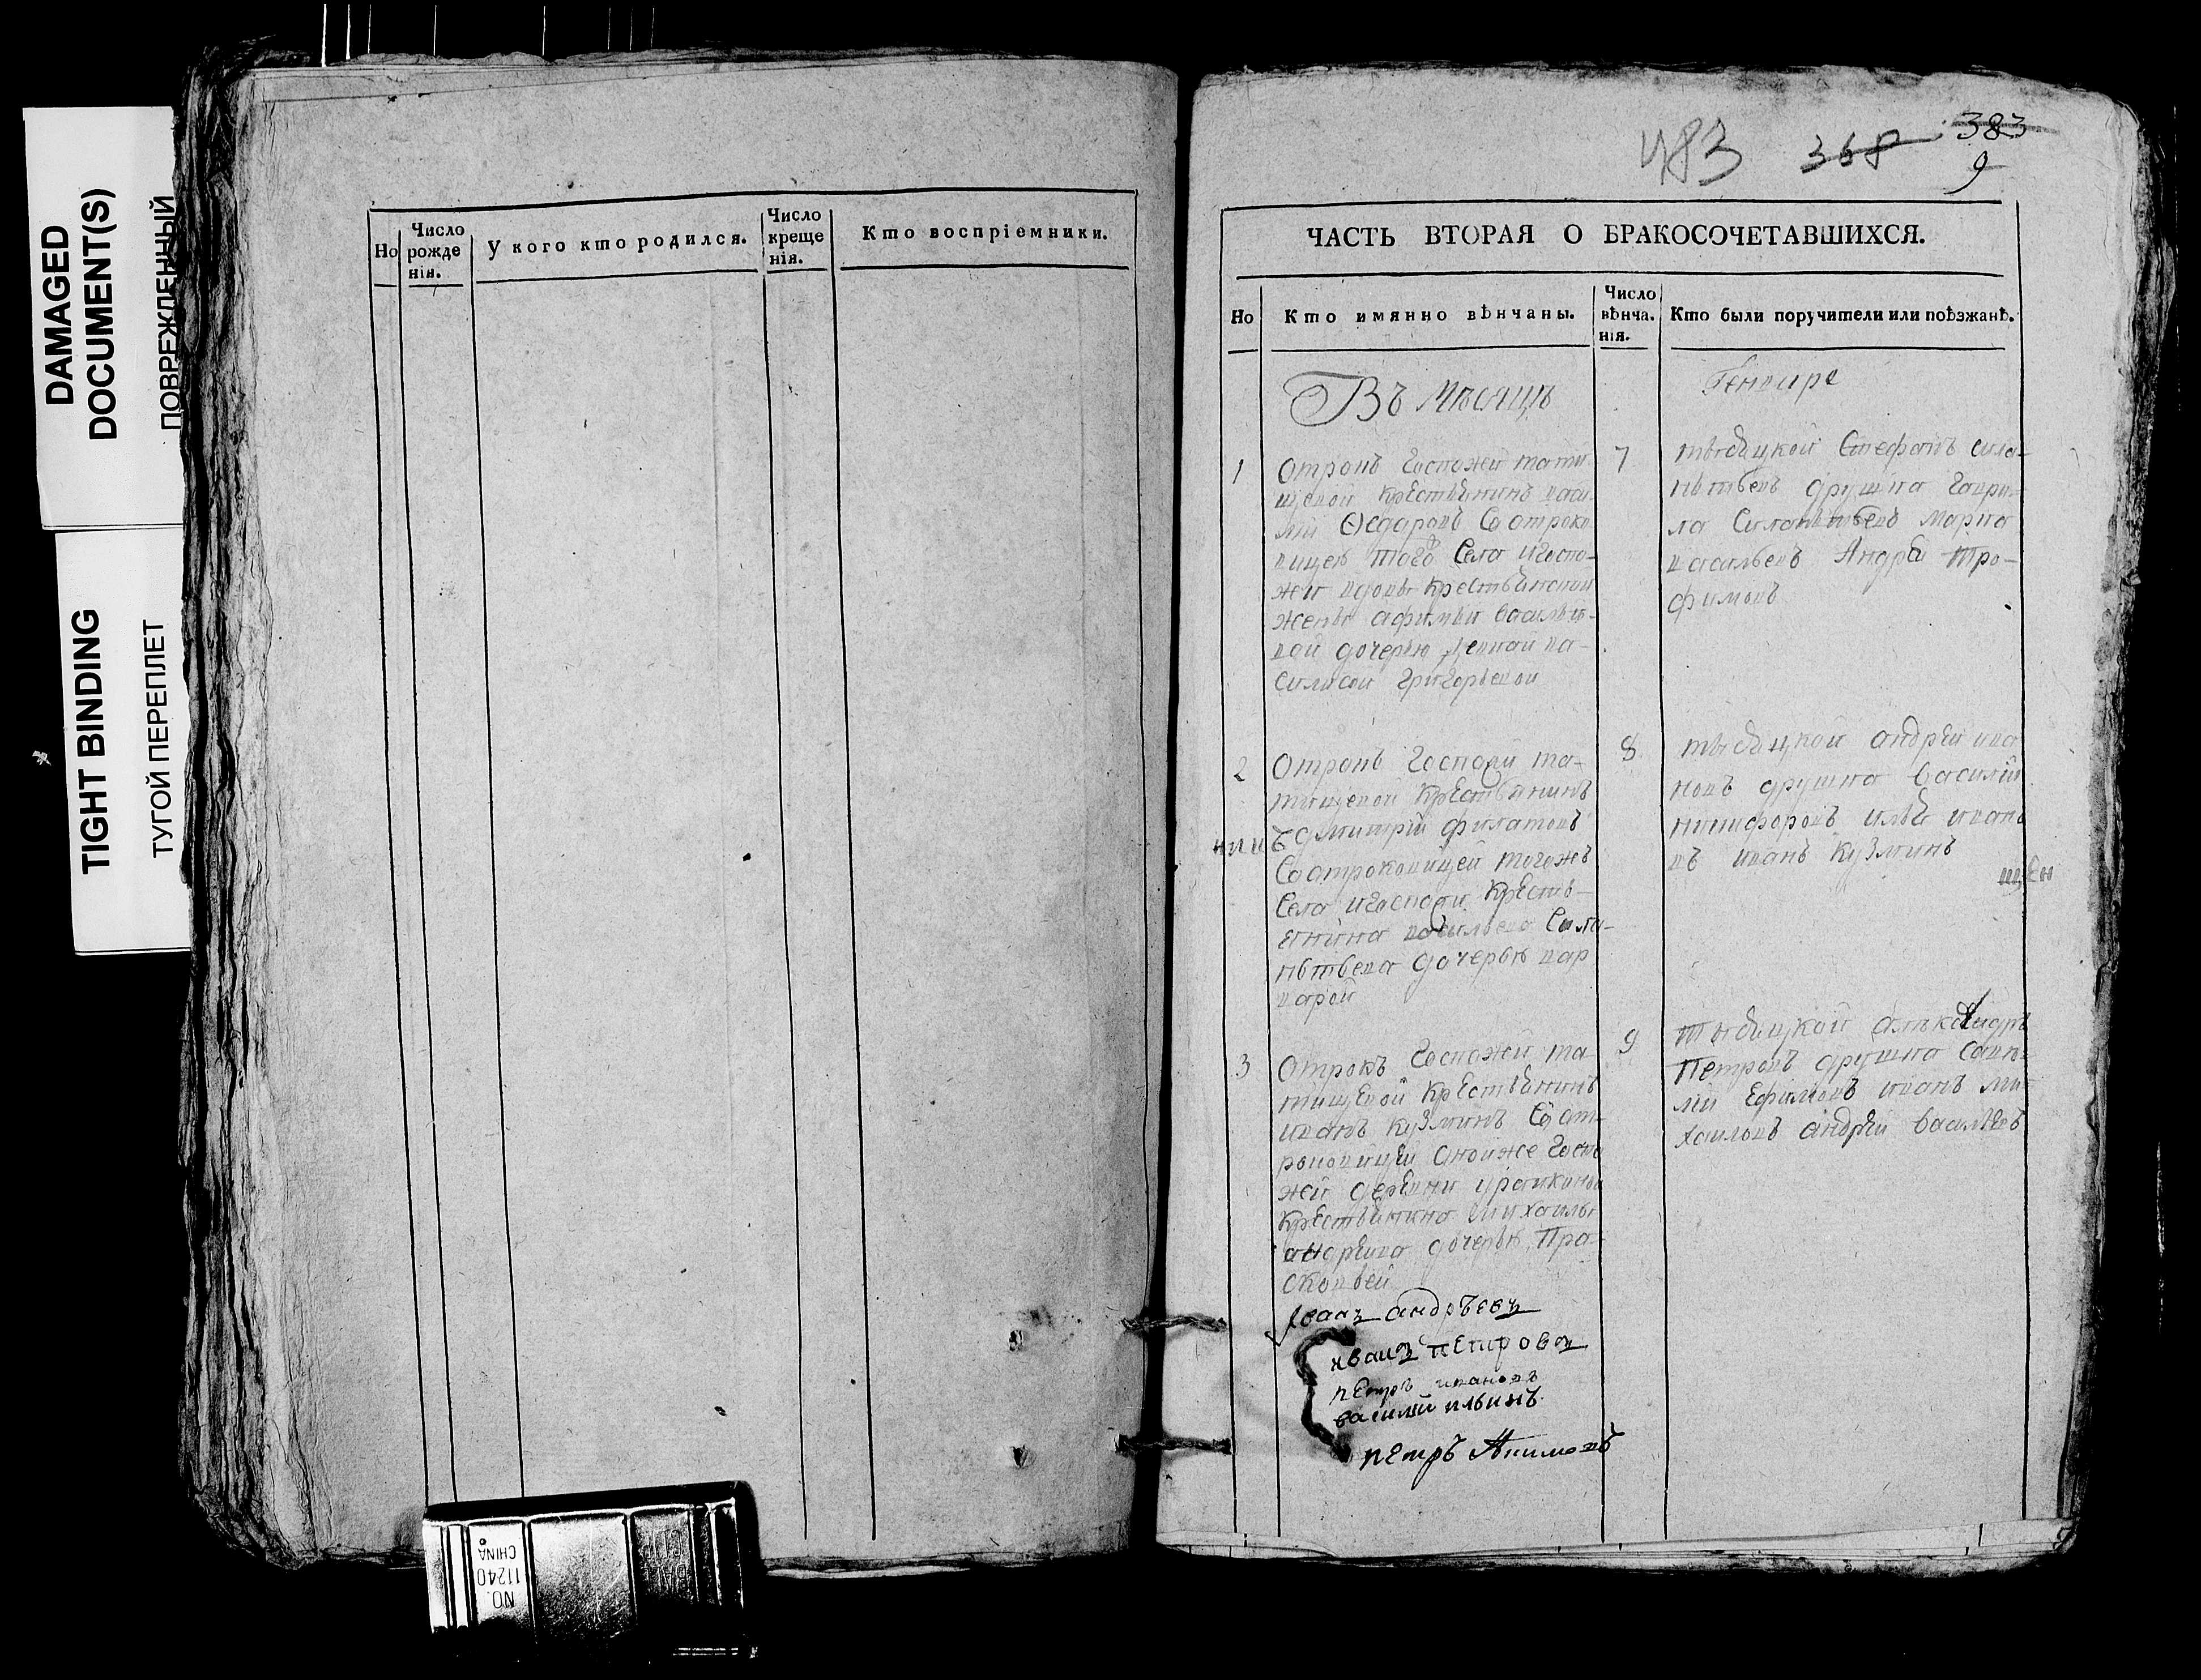 DAMAGED
DOCUMENT(S)
ПОВРЕЖДЕННЫЙ
TIGHT BINDING
ТУГОЙ ПЕРЕПЛЕТ
Но
Число
рожде
нія.
У кого кто родился.
Число
креще
нія.
Кто воспріемники.
NO. 11240
CHINA
483 368 383
9
ЧАСТЬ ВТОРАЯ О БРАКОСОЧЕТАВШИХСЯ.
Но
Кто имянно вѣнчаны.
Число
вѣнча.
нія.
Кто были поручители или поѣзжанѣ.
Въ мѣсяцѣ
Генваре
1
Отрокъ Госпожей тати
щевой крестьянинъ васи
лій Ѳедоровъ Со отроко
вицею того Села и Госпо-
жи вдовы крестьянской
жены афимьи васильи-
вой дочерью девкой ва-
силисой григорьевой
7
тысяцкой Стефанъ сила-
нтьевъ дружка Гаври-
ла Силантьевъ марка
васильевъ Андрей тро-
фимовъ
2
Отрокъ Госпожи та-
тищевой крестьянинъ
дмитрій филатовъ
Со отроковицей тогожъ
Села и Госпожи кресть-
янина васильева Сила-
нтьева дочерью вар
варой
8
тысяцкой андрей ива
новъ дружка василій
никифоровъ илья ивано
въ иванъ кузминъ
3
Отрокъ Госпожей та-
тищевой крестьянинъ
иванъ кузминъ Со от-
роковицей оной же Госпо
жей деревни
крестьянина михаилы
андреива дочерью Пра-
сковьей
9
тысяцкой алѣксандръ
Петровъ дружка Саве-
лій Ефимовъ иванъ ми-
хаиловъ андрей васильевъ
Іванъ андрѣевъ
иванъ петровъ
петръ ивановъ
василий ильинъ
петръ Акимовъ